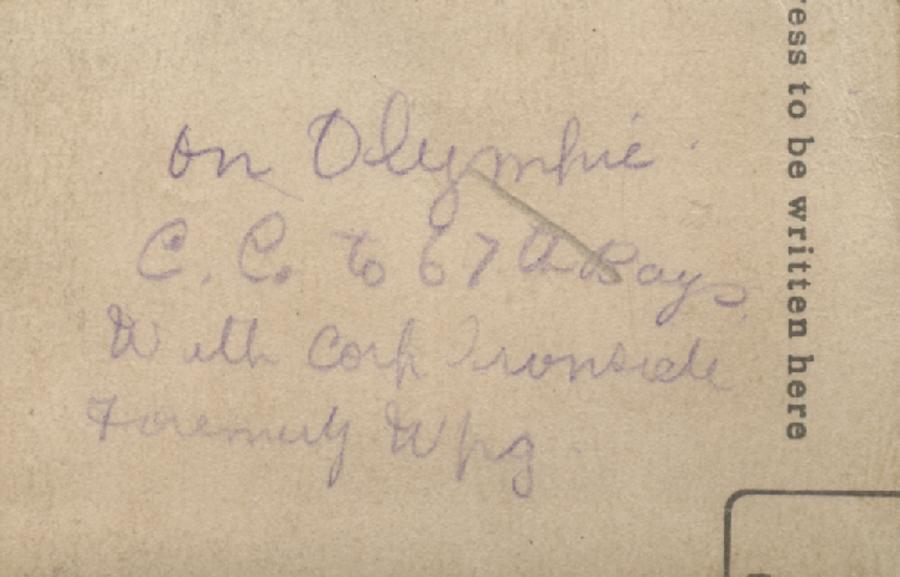 on Olympic.
C. C. to 67th Boys
With Corp Ironside
Foremuly Wpg.
ress to be written here